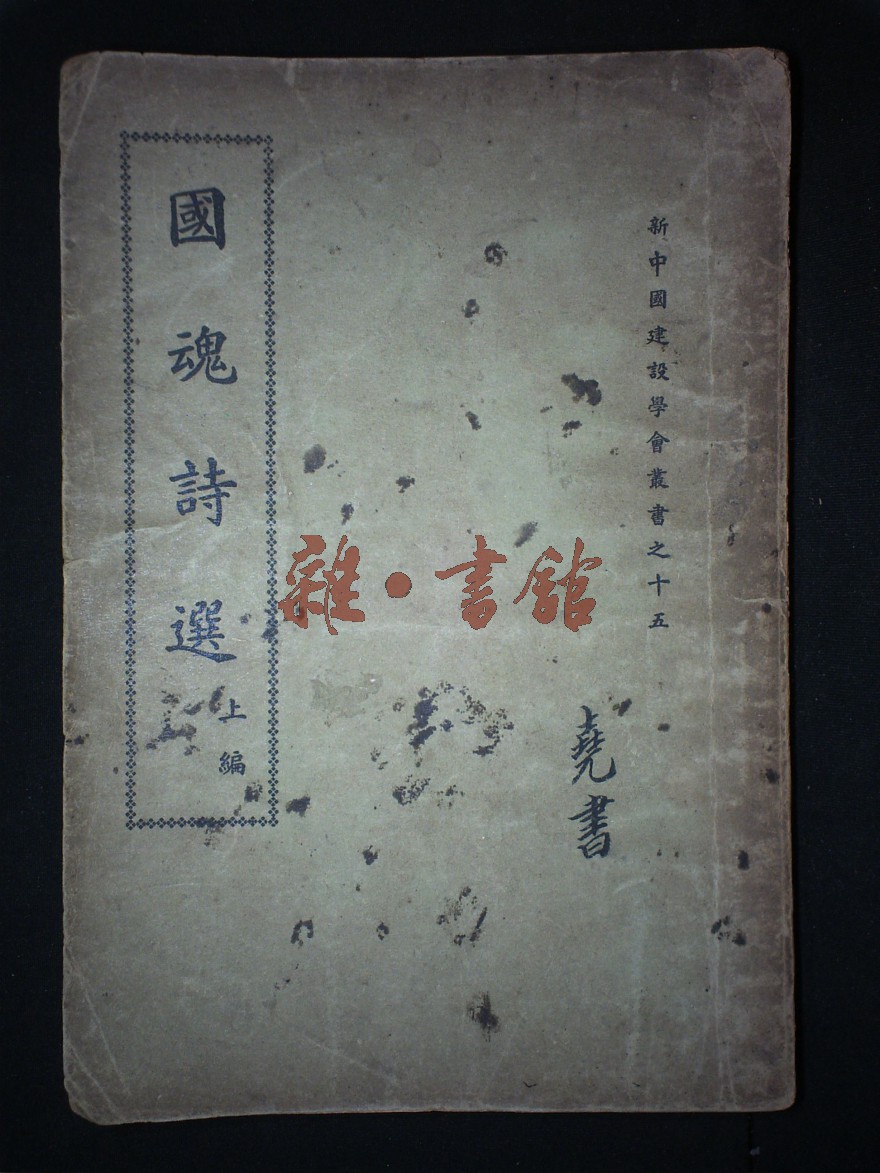 新中國建設學會叢書之十五
堯書
國魂詩選
上編
雜·書館